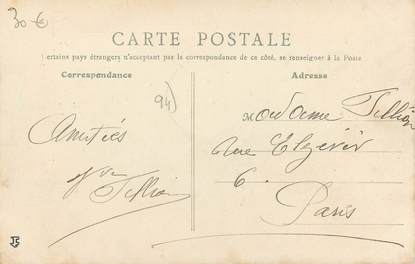 30 €
CARTE POSTALE
Certains pays étrangers n'acceptant pas la correspondance de ce côté, se renseigner à la Poste
Correspondance
Adresse
94)
Amitiés
Tillion
Madame Tillion
rue Elzévir
6.
Paris